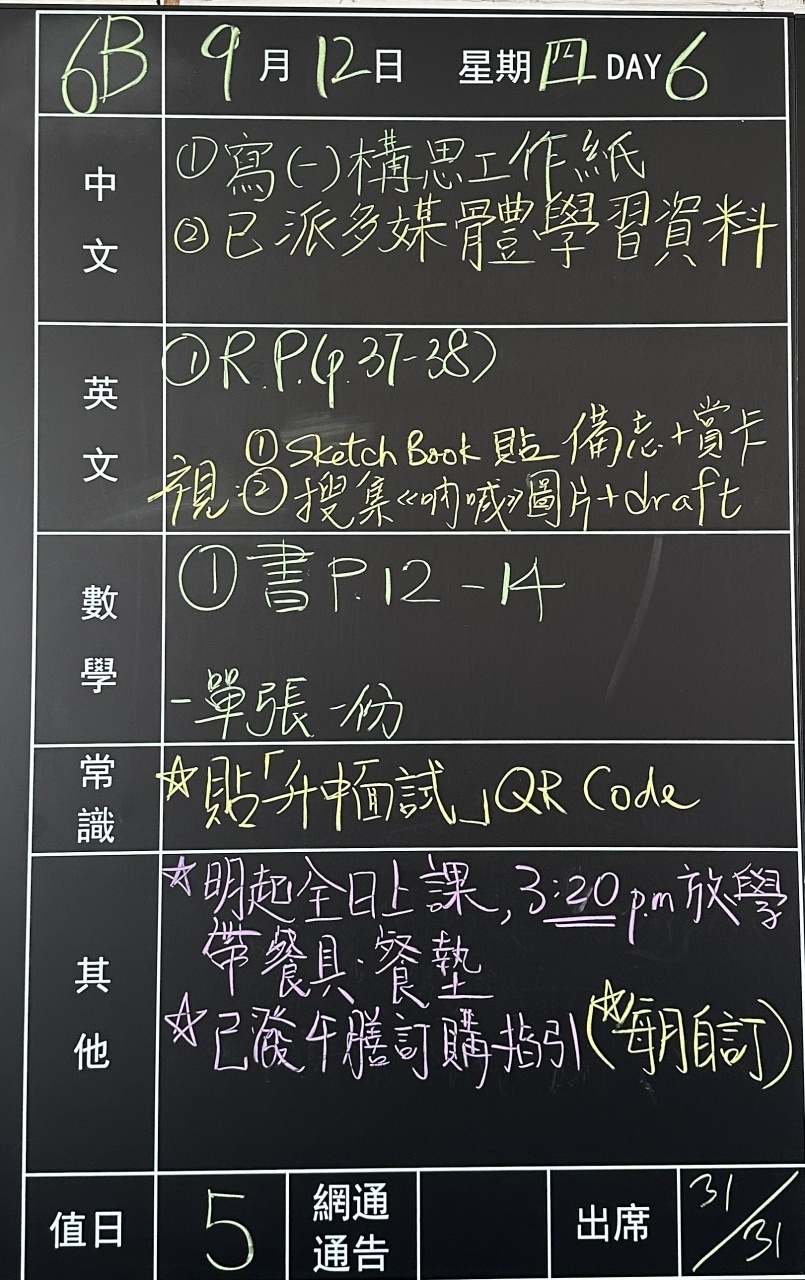 6B 9月12日 星期四 DAY 6
中文
①寫(一)構思工作紙
②已派多媒體學習資料
英文
①R.P.(p.37-38)
視:①Sketch Book 貼 備忘+賞卡
②搜集《吶喊》圖片+draft
數學
①書P.12-14
-單張一份
常識
☆貼「升中面試」QR Code
其他
☆明起全日上課,3:20 p.m 放學
帶餐具、餐墊
☆已發午膳訂購指引(☆每月自訂)
值日 5 網通通告 出席 31/31